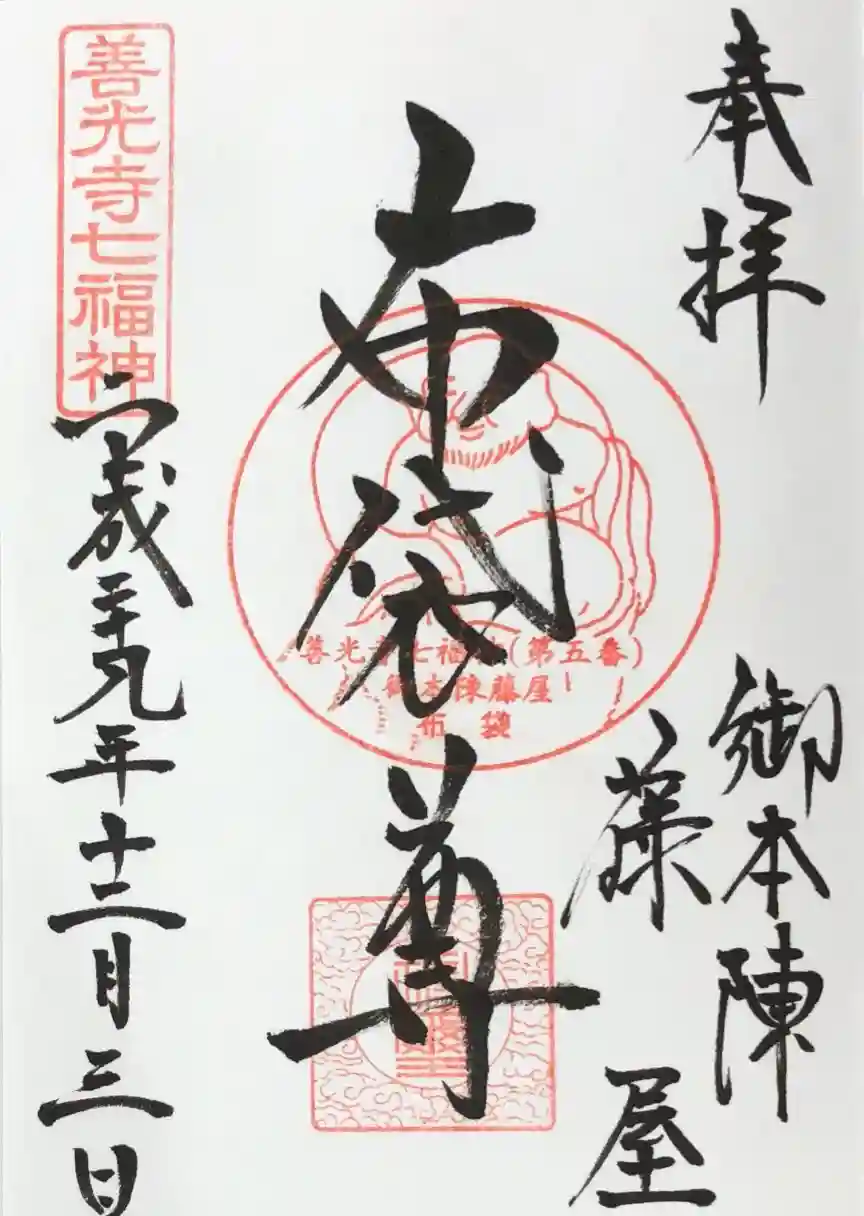 奉拝
御本陳
藤屋
布袋尊
善光寺七福神(第五番)
御本陳藤屋
布袋
善光寺七福神
平成二十九年十二月三日